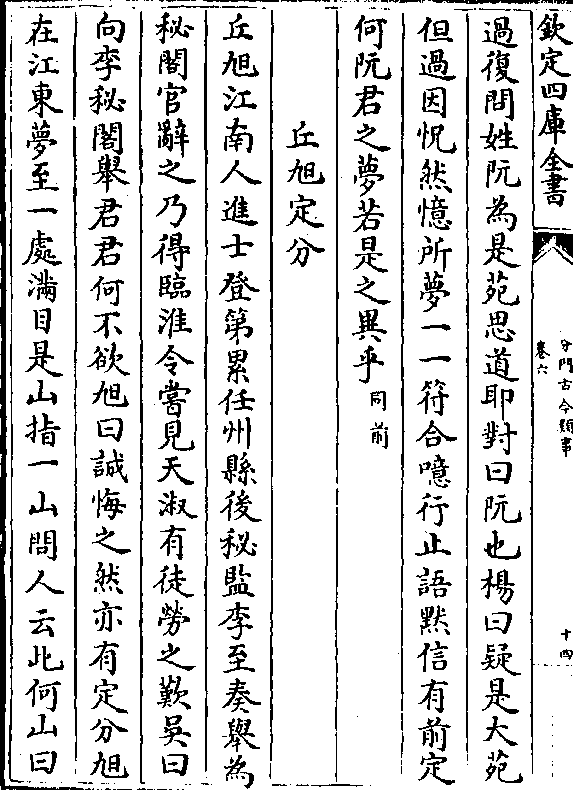 欽定四庫全書
分門古今類事
卷六
十四
過復問姓阮為是苑思道耶對曰阮也楊曰疑是大苑
但過因怳然憶所夢一一符合噫行止語默信有前定
何阮君之夢若是之異乎同前
丘旭定分
丘旭江南人進士登第累任州縣後秘監李至奏舉為
秘閣官辭之乃得臨淮令嘗見天淑有徒勞之歎吳曰
向李秘閣舉君君何不欲旭曰誠悔之然亦有定分旭
在江東夢至一處滿目是山指一山問人云此何山曰